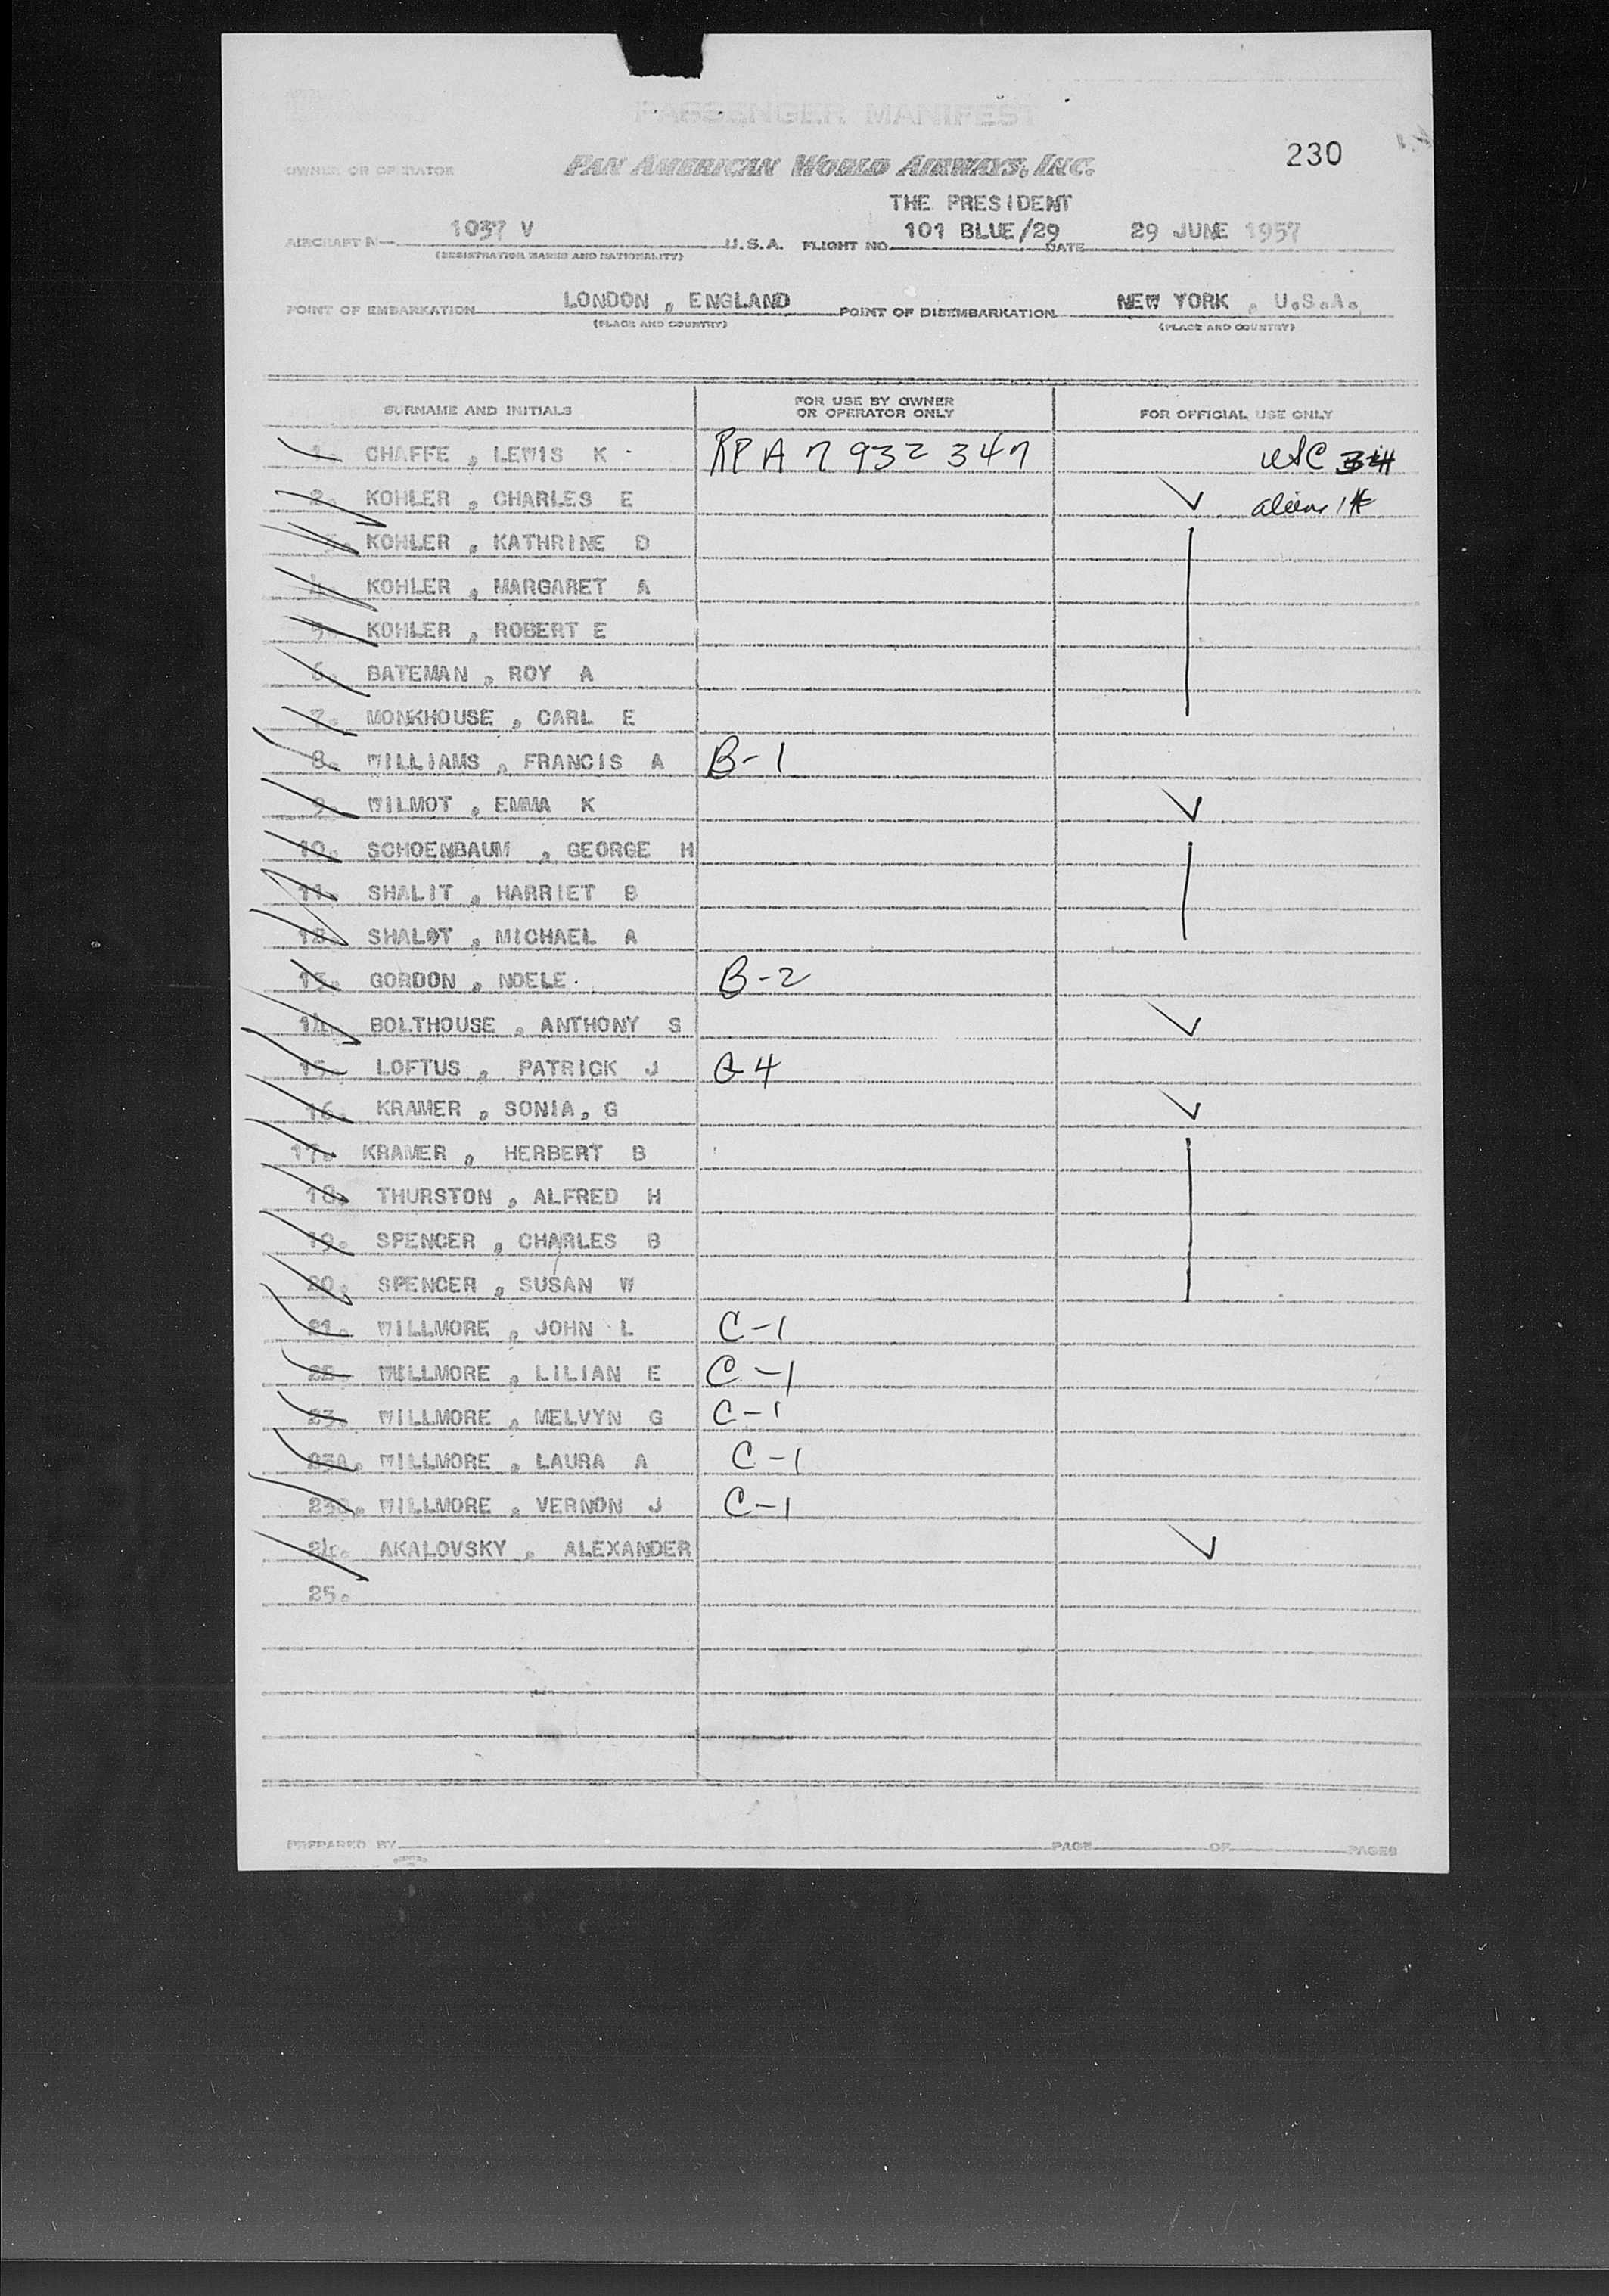 PASSENGER MANIFEST
230
OWNER OR OPERATOR PAN AMERICAN WORLD AIRWAYS, INC.
THE PRESIDENT
AIRCRAFT N— 1037 V U.S.A. FLIGHT NO. 101 BLUE/29 DATE 29 JUNE 1957
(REGISTRATION MARKS AND NATIONALITY)
POINT OF EMBARKATION LONDON , ENGLAND POINT OF DISEMBARKATION NEW YORK , U.S.A.
(PLACE AND COUNTRY) (PLACE AND COUNTRY)
SURNAME AND INITIALS FOR USE BY OWNER OR OPERATOR ONLY FOR OFFICIAL USE ONLY
1. CHAFFE , LEWIS K RP A7 932 347 USC
2. KOHLER , CHARLES E ✓ aliens
3. KOHLER , KATHRINE D
4. KOHLER , MARGARET A
5. KOHLER , ROBERT E
6. BATEMAN , ROY A
7. MONKHOUSE , CARL E
8. WILLIAMS , FRANCIS A B-1
9. WILMOT , EMMA K ✓
10. SCHOENBAUM , GEORGE H
11. SHALIT , HARRIET B
12. SHALOT , MICHAEL A
13. GORDON , NOELE. B-2
14. BOLTHOUSE , ANTHONY S ✓
15. LOFTUS , PATRICK J G4
16. KRAMER , SONIA, G ✓
17. KRAMER , HERBERT B
18. THURSTON , ALFRED H
19. SPENCER , CHARLES B
20. SPENCER , SUSAN W
21. WILLMORE , JOHN L C-1
22 WILLMORE , LILIAN E C-1
23. WILLMORE , MELVYN G C-1
23A. WILLMORE , LAURA A C-1
WILLMORE , VERNON J C-1
24. AKALOVSKY , ALEXANDER ✓
25.
PREPARED BY PAGE OF PAGES